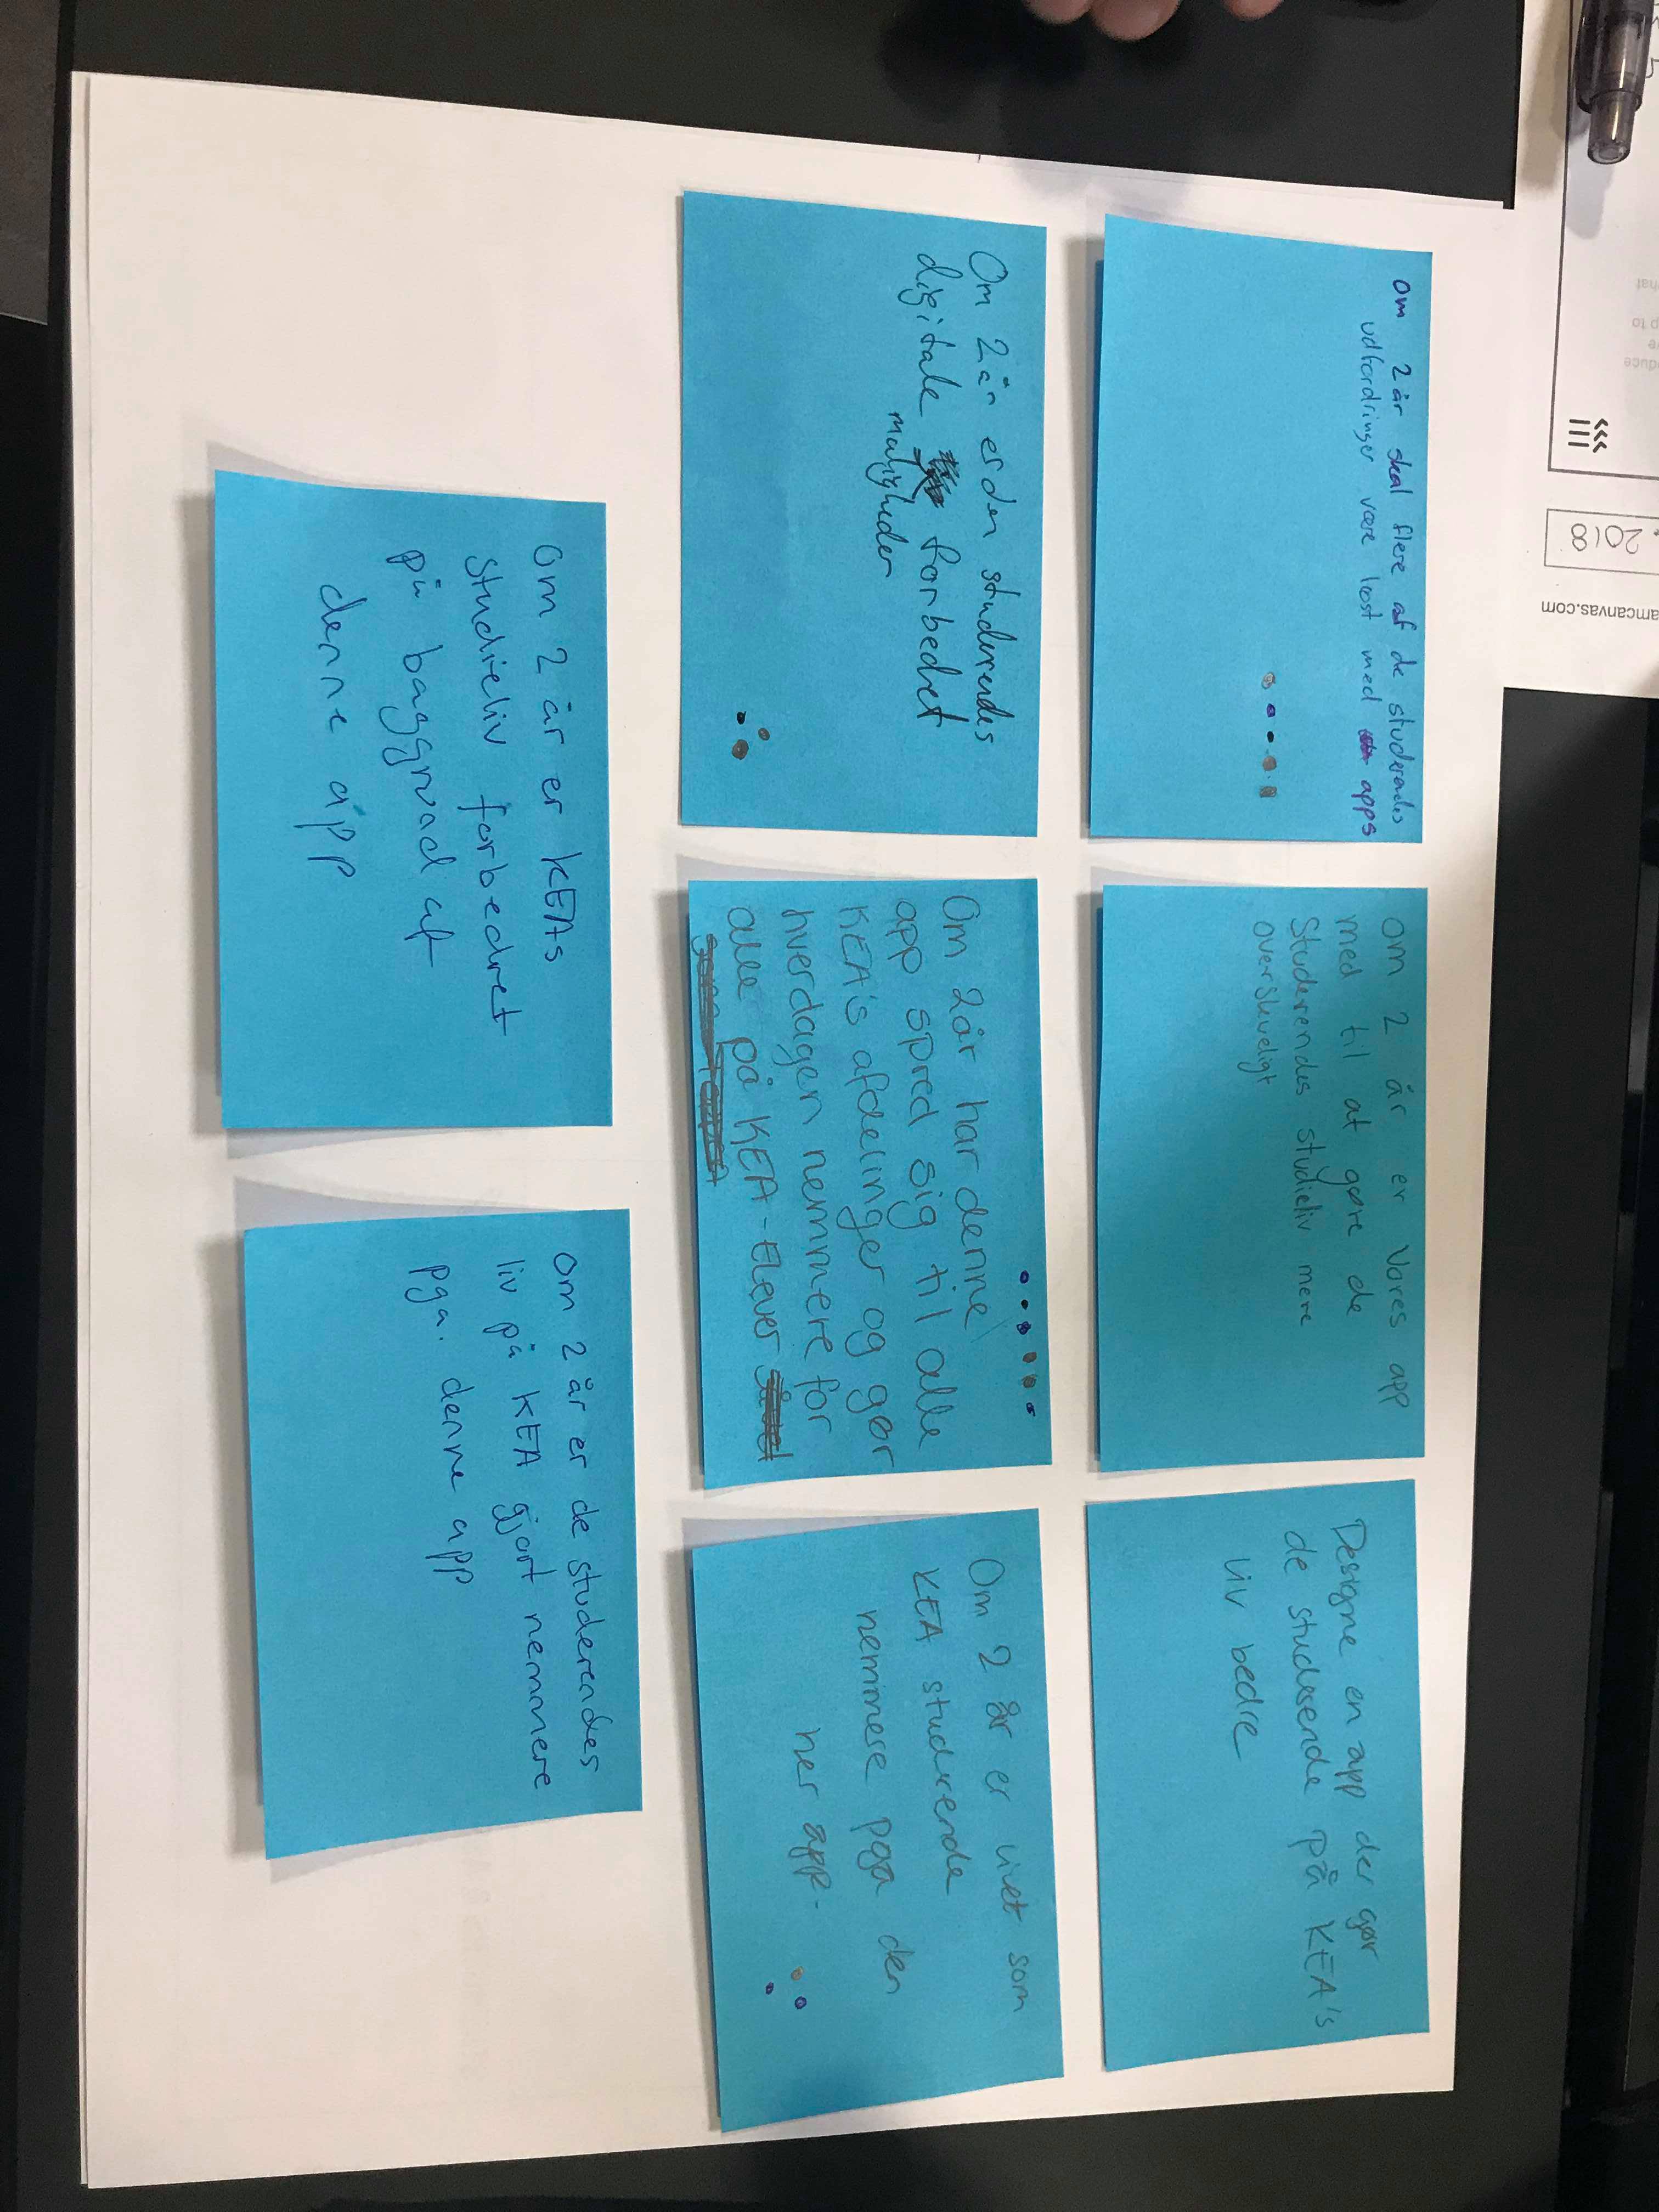 2018
amcanvas.com
Om 2 år skal flere af de studerendes
udfordringer være løst med apps
Om 2 år er Vores app
med til at gøre de
Studerendes studieliv mere
overskueligt
Designe en app der gør
de studerende på KEA's
liv bedre
Om 2 år er den studerendes
digitale forbedret
muligheder
Om 2 år har denne
app spred sig til alle
KEA's afdelinger og gør
hverdagen nemmere for
alle på KEA-Elever
Om 2 år er livet som
KEA studerende
nemmere pga den
her app.
Om 2 år er KEAs
Studieliv forbedret
på baggrund af
denne app
Om 2 år er de studerendes
liv på KEA gjort nemmere
pga. denne app